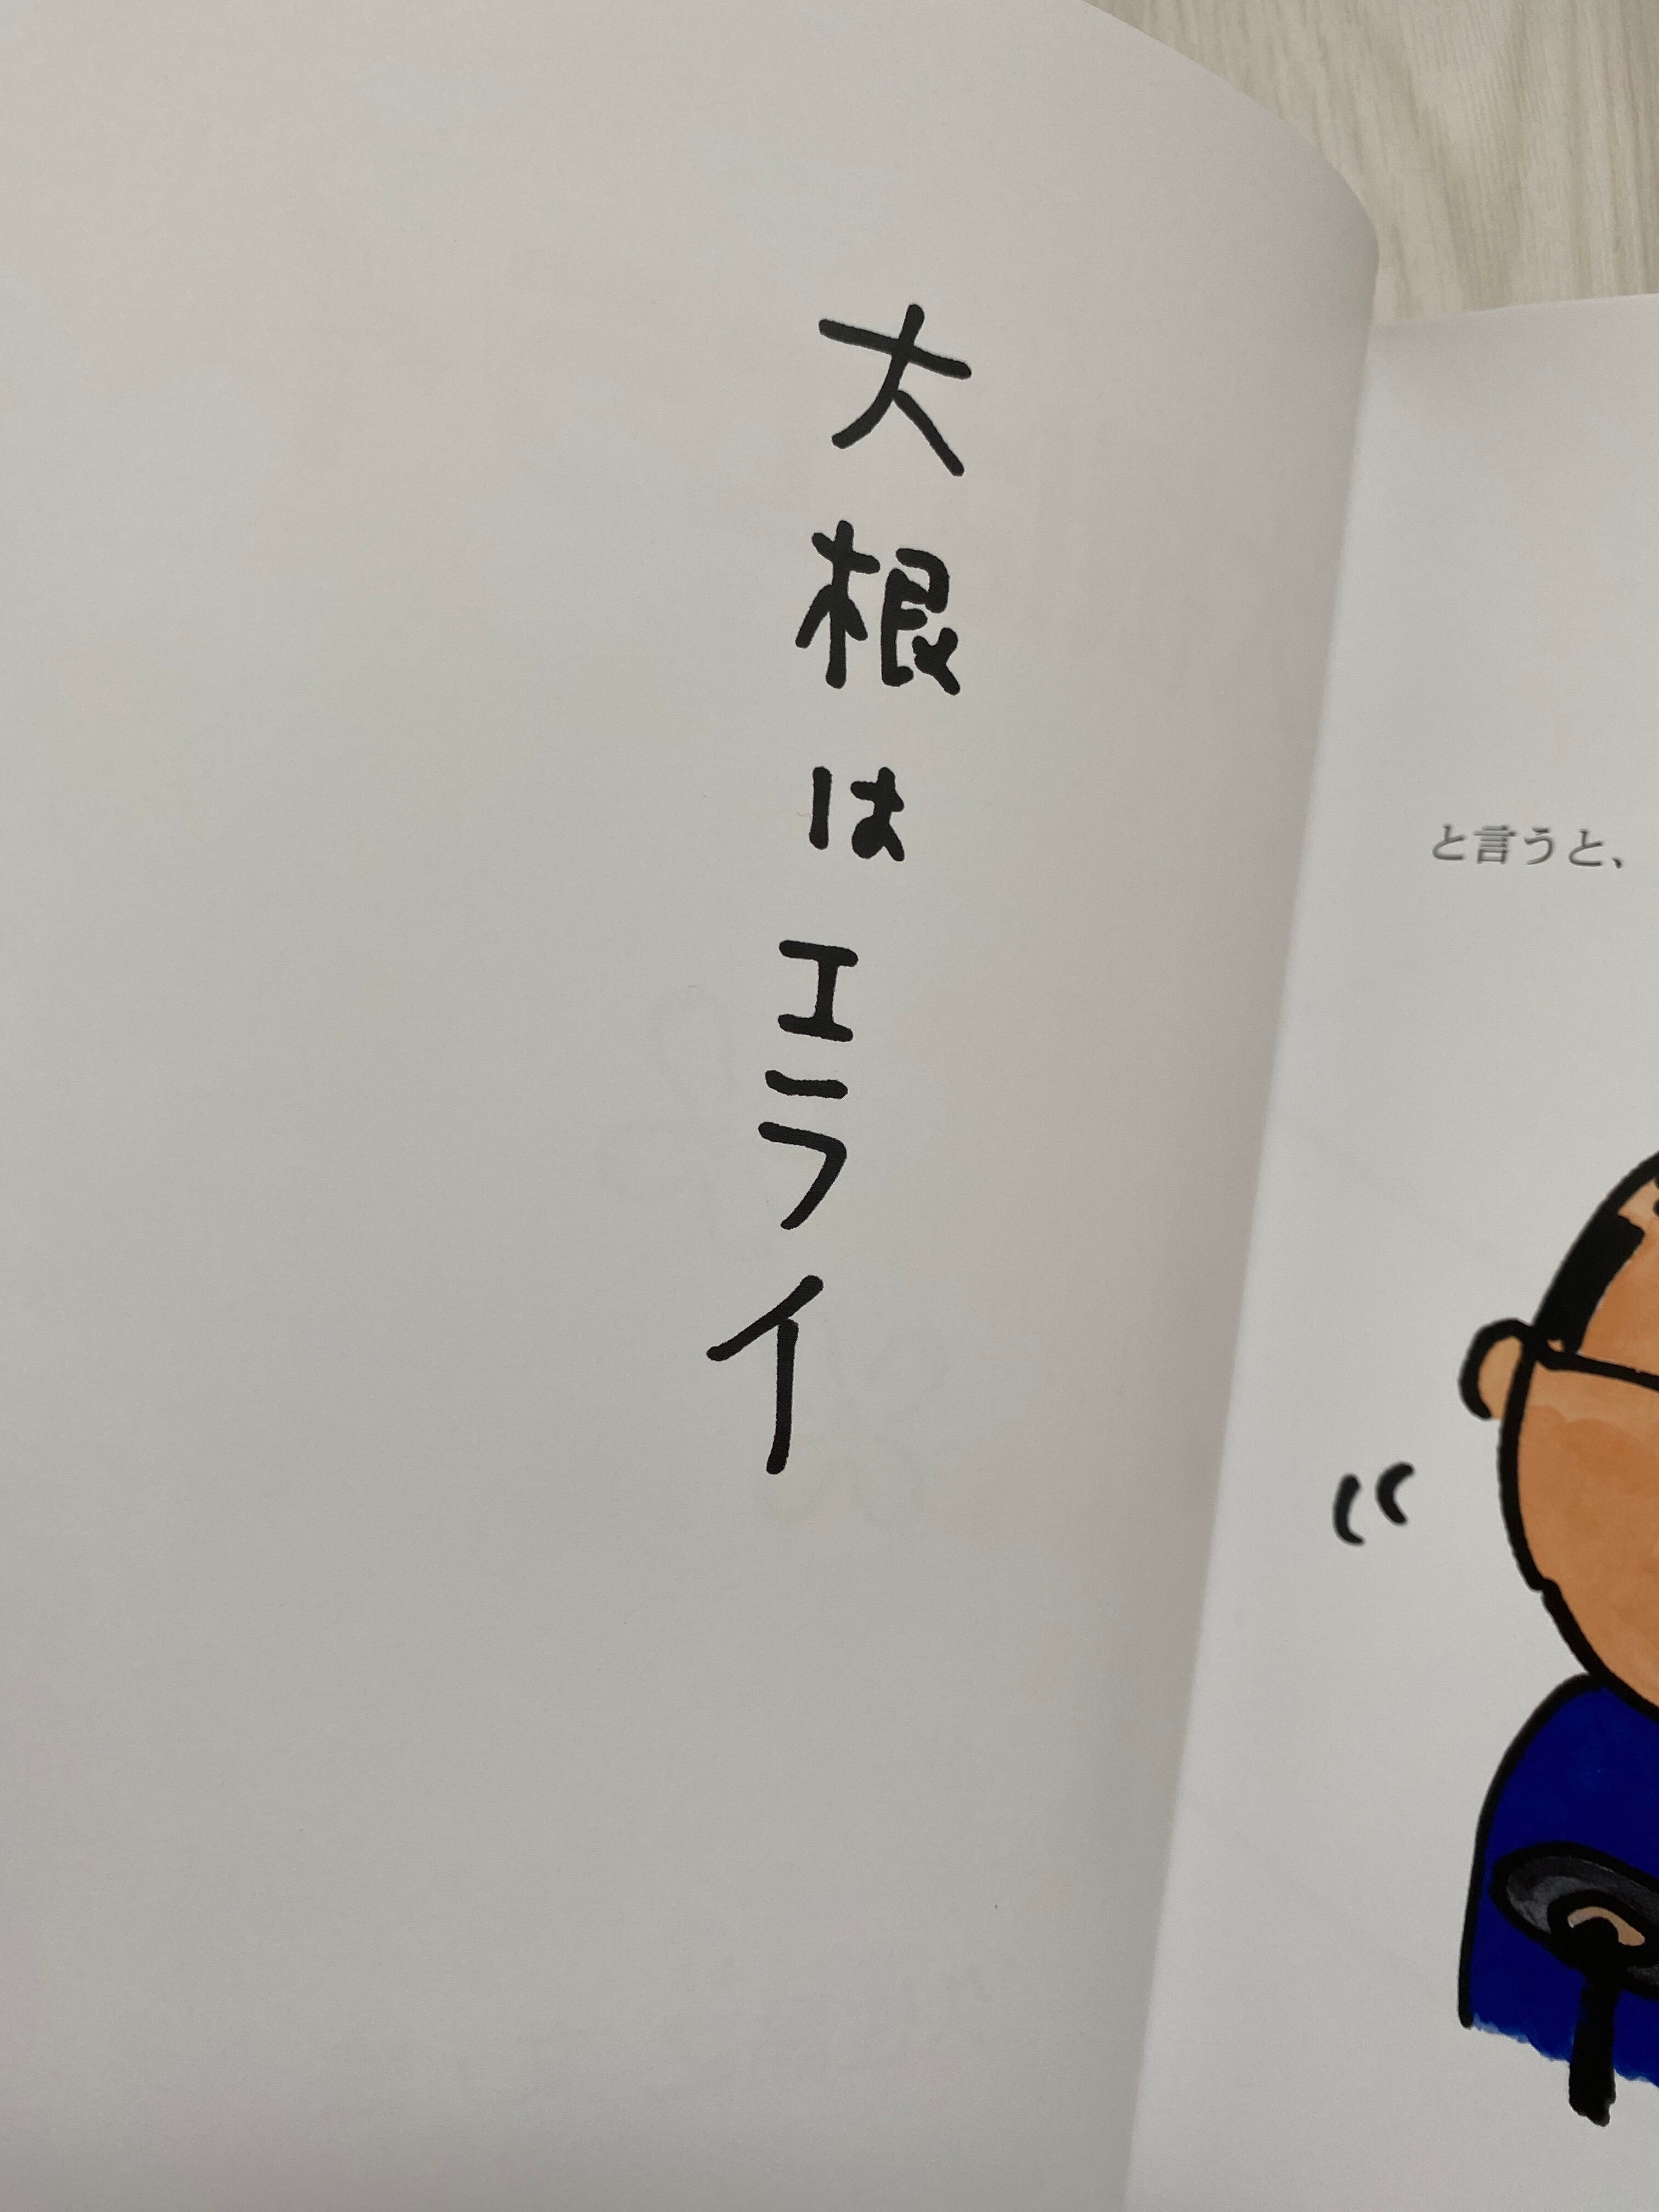 大根はエライ
と言うと、